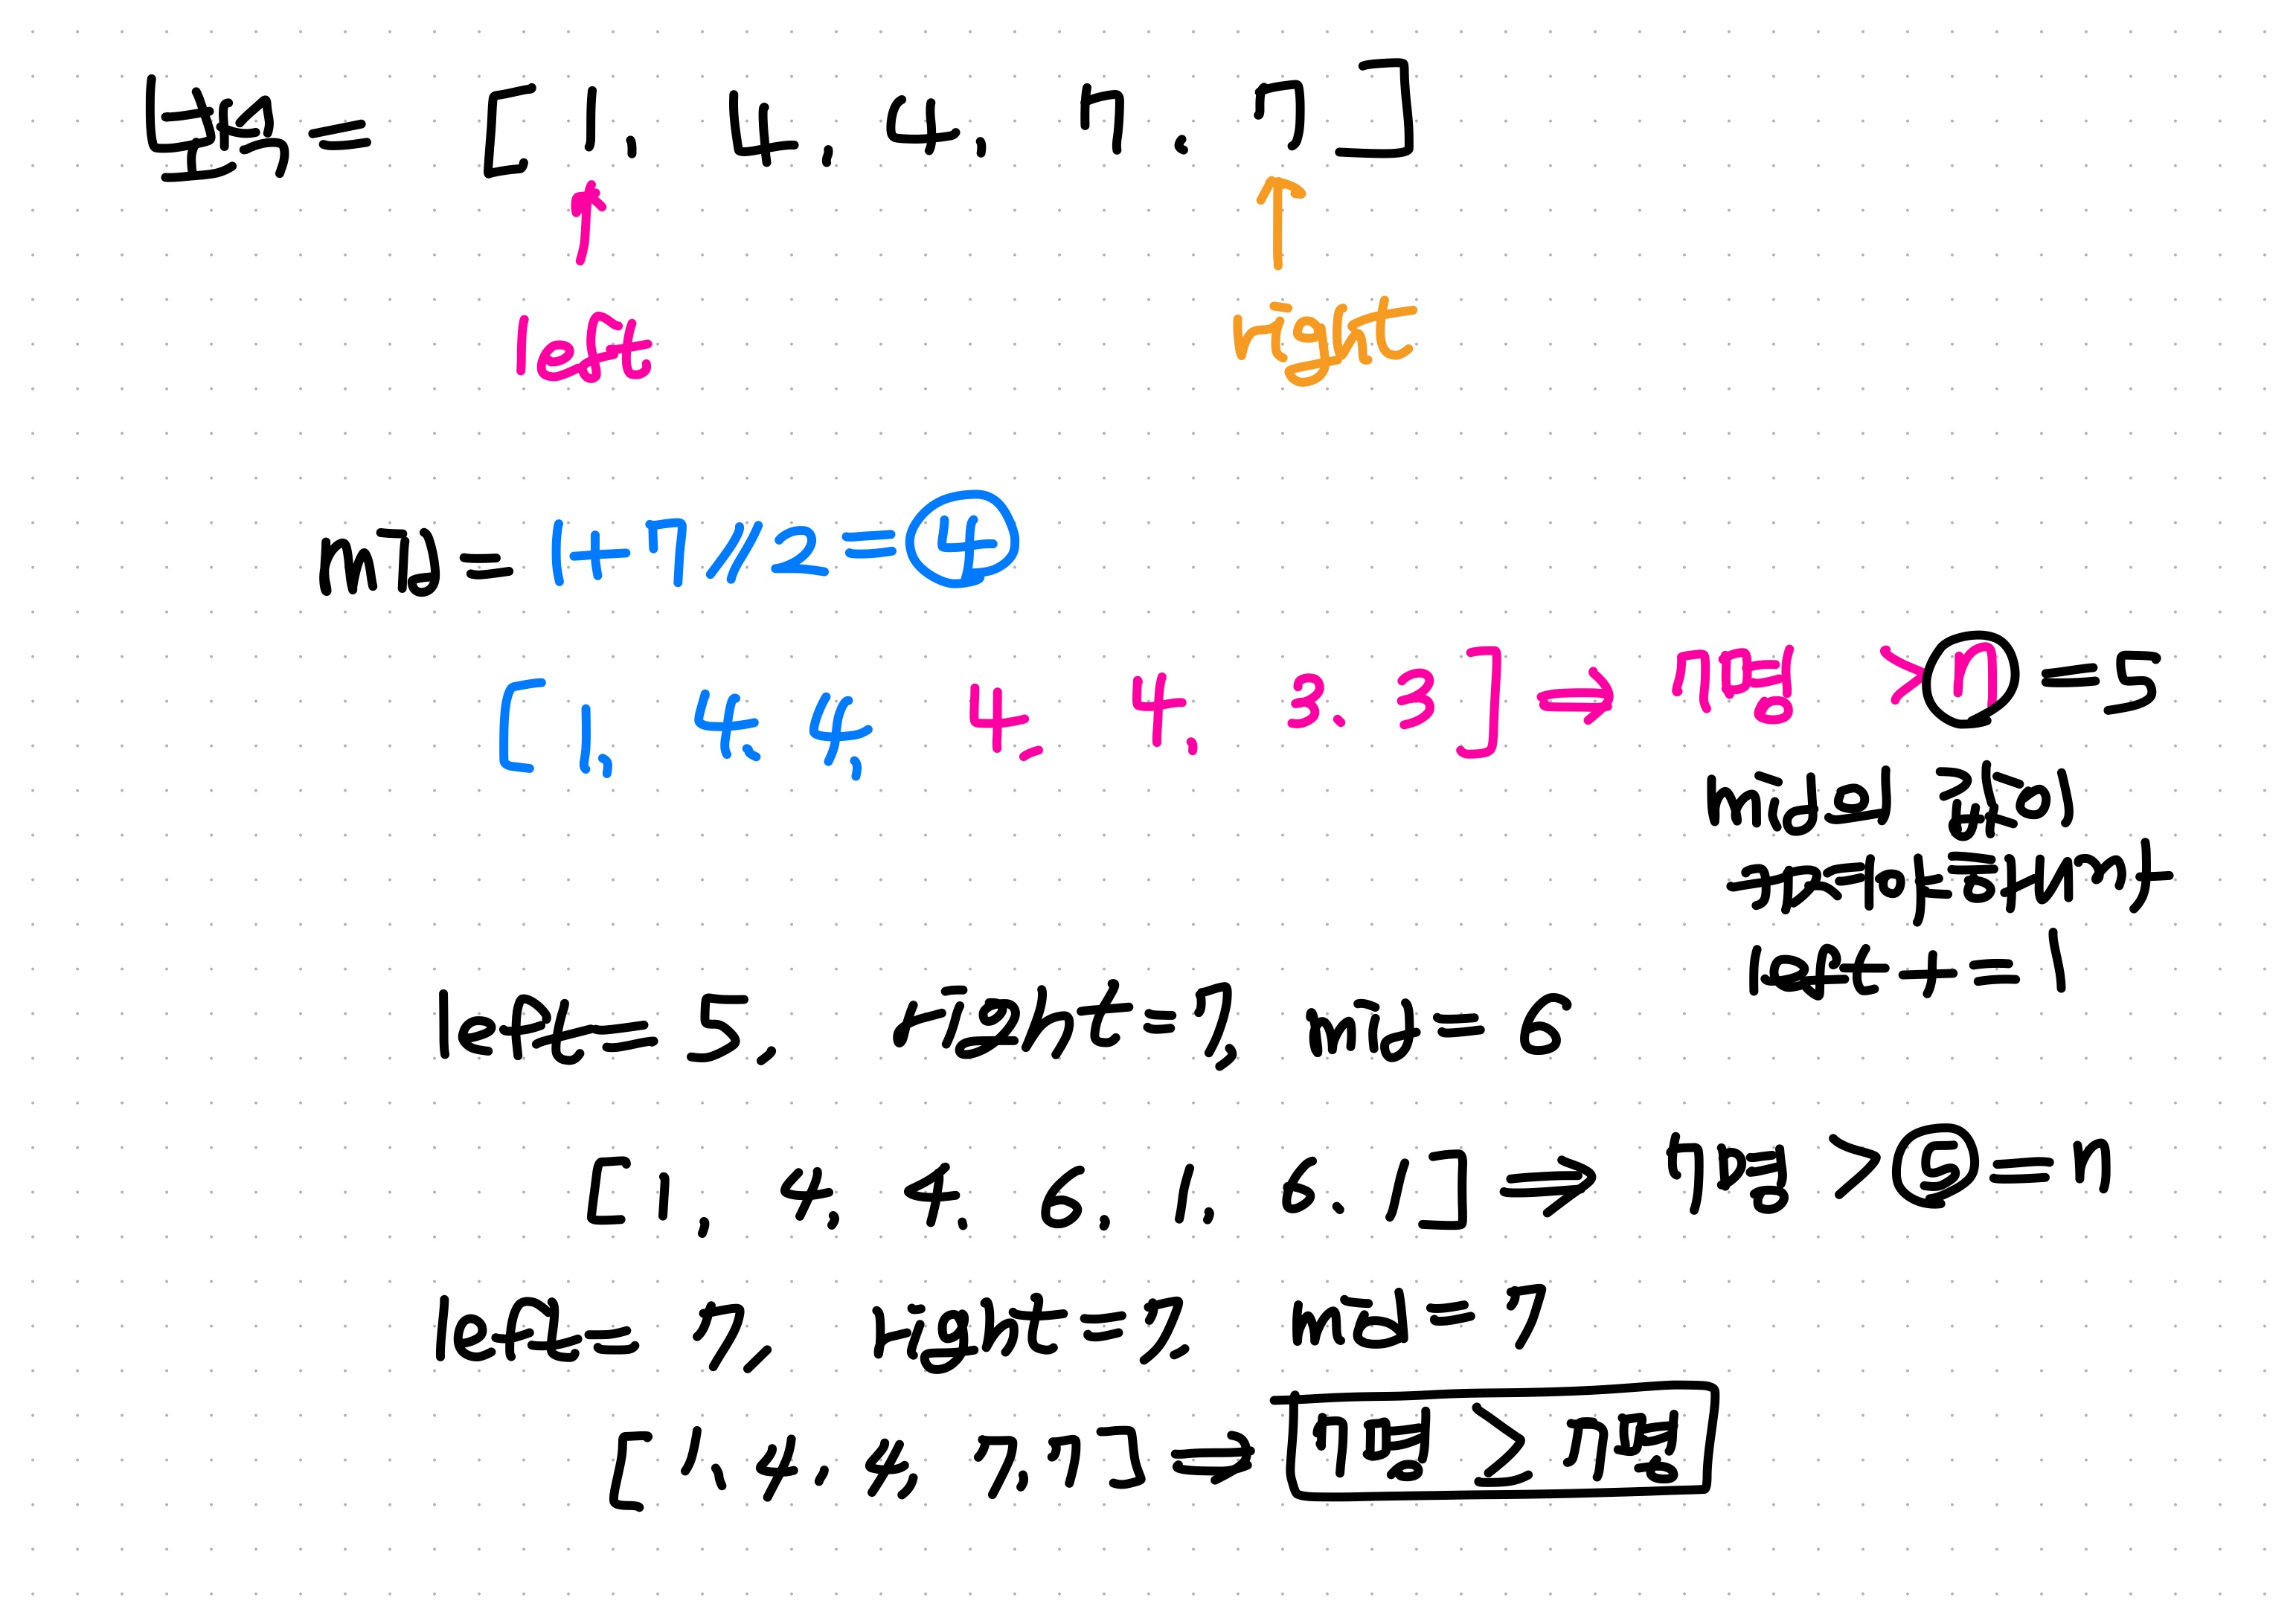 보석 = [ 1, 4, 4, 7, 7 ]
left right
mid = 1+7//2=4
[ 1, 4, 4, 4, 4, 3, 3 ] ⇒ 7명 > n = 5
mid의 값이
커져야 하니까
left += 1
left = 5, right = 7, mid = 6
[ 1, 4, 4, 6, 1, 6, 1 ] ⇒ 7명 > 5 = n
left = 7, right = 7, mid = 7
[ 1, 4, 4, 7, 7 ] ⇒